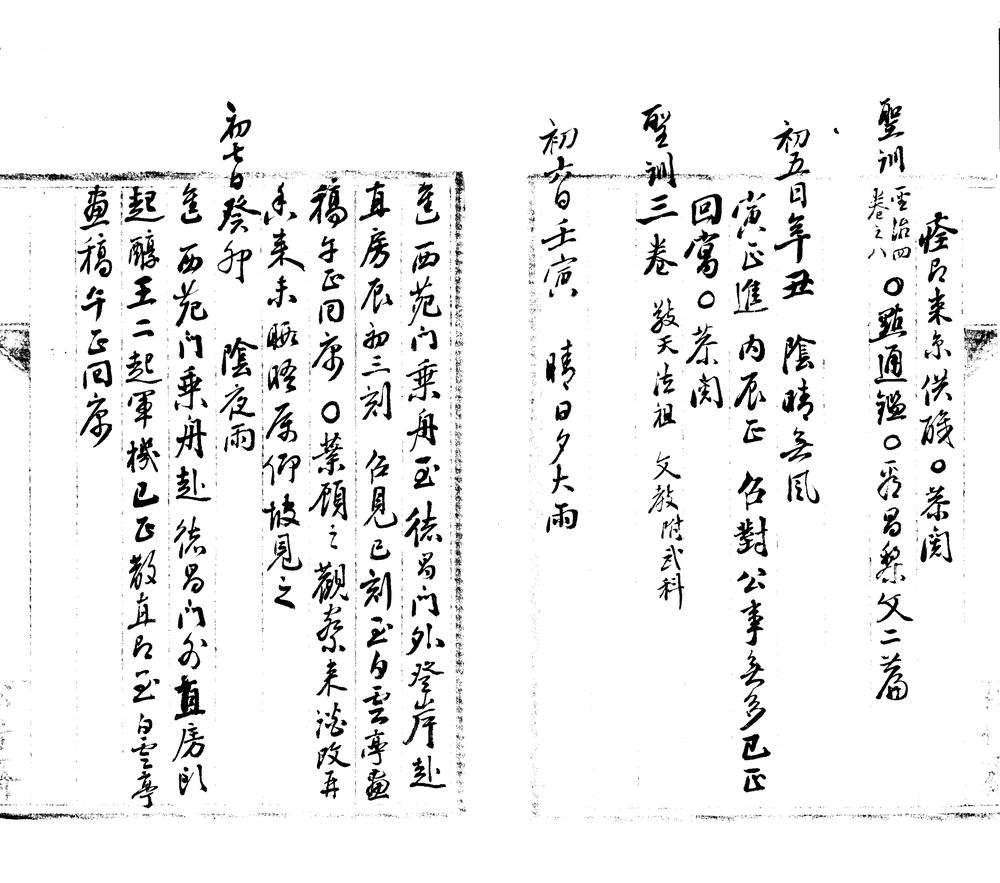 後即來京供職○茶閱
聖訓 聖治四卷之八 ○點通鑑○看昌黎文二篇
初五日辛丑 陰晴無風
寅正進 内辰正 召對公事無多巳正
回寓○茶閱
聖訓三卷 敬天法祖 文教附武科
初六日壬寅 晴日夕大雨
進 西苑門乘舟至德昌門外登岸赴
直房辰初三刻 召見巳刻至白雲亭畫
稿午正回寓○葉顧之觀察來談改再
來未晤晤屠仰坡見之
初七日癸卯 陰夜雨
進 西苑門乘舟赴德昌門外直房頭
起醇王二起軍機巳正散直即至白雲亭
畫稿午正回寓